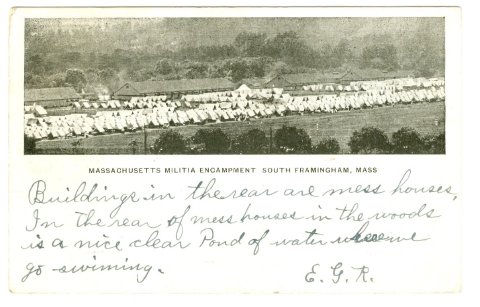 MASSACHUSETTS MILITIA ENCAMPMENT SOUTH FRAMINGHAM, MASS
Buildings in the rear are mess houses,
In the rear of mess houses in the woods
is a nice clear Pond of water where we
go swiming.
E. G. R.